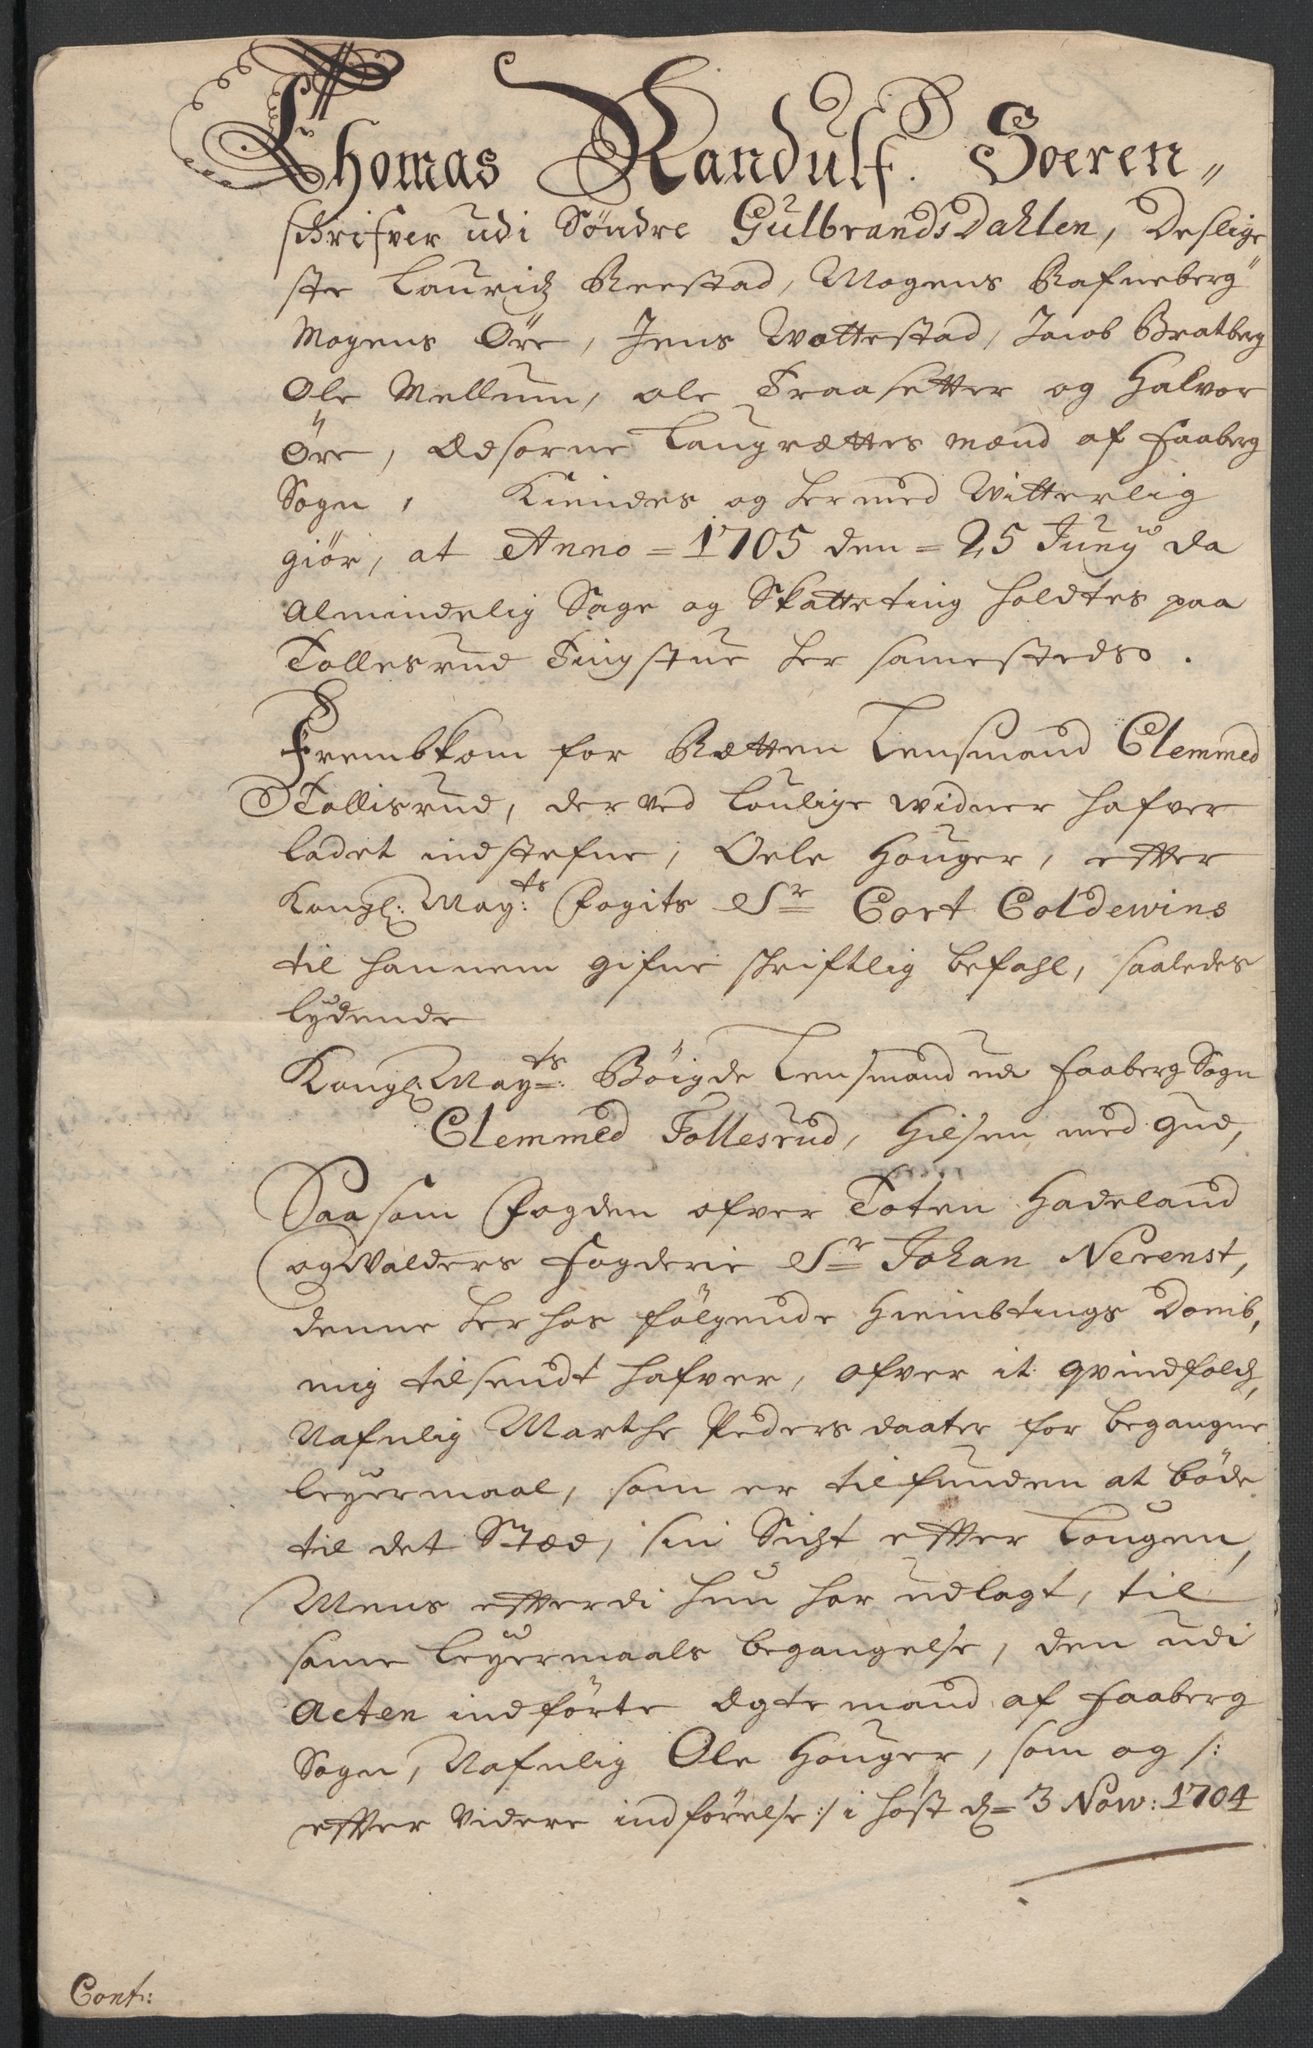 Thomas Randulf. Soeren„
schrifver udi Søndre GulbrandsDahlen, Deslige
ste Lauridz Reestad, Mogens Rafneberg
Mogens Öre, Jens Wottestad, Jacob Bratberg
Ole Mellum, ole Traasetter og Halvor
Öre, Edsorne Laugrættes mænd af Faaberg
Sogn, Kiendes og her med Witterlig
giør, at Anno = 1705 den = 25 Junÿ da
Almindelig Sage og Skatteting holdtes paa
Tollesrud Tingstue her samesteds.
Frembkom for Rætten Lensmand Clemmed
Tollisrud, der ved loulige widner hafver
ladet indstefne, Oele Houger, efter
Kongl: May:ts Fogits Sr Cort Coldewins
til hannem gifne skriftlig befahl, saaledes
lydende
Kongl: May:ts Böigde Lensmand udi Faaberg Sogn
Clemmed Tollesrud, Hilsen med Gud,
Saa som Fogden ofver Toten Hadeland
og Walders Fogderie Sr Johan Nerenst,
denne her hos fölgende Hiembtings Domb,
mig tilsendt hafver, ofver it qvindfolch,
Nafnlig Marthe Peders daater for begangne
leyermaal, som er tilfunden at böde
til det Stæd, sin Sicht efter Lougen,
Mens efterdi hun har udlagt, til
same leyermaals begangelse, den udi
Acten indförte Egte mand af Faaberg
Sogn, Nafnlig Ole Houger, som og /:
efter videre indförelse :/ i höst d= 3 Now: 1704
Cont: